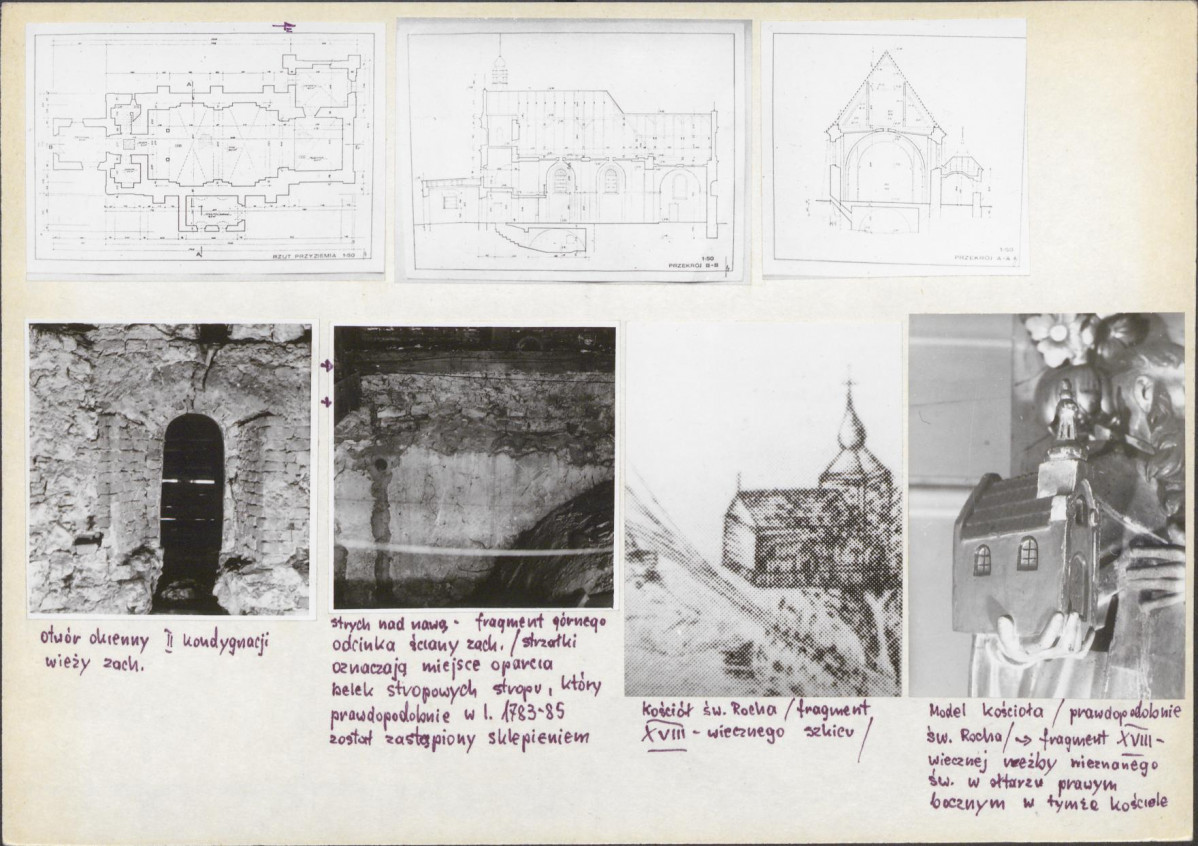 RZUT PRZYZIEMIA 1:50
1:50
PRZEKRÓJ B-B
1:50
PRZEKRÓJ A-A
otwór okienny II kondygnacji
wieży zach.
strych nad nawą - fragment górnego
odcinka ściany zach. / strzałki
oznaczają miejsce oparcia
belek stropowych stropu, który
prawdopodobnie w l. 1783-85
został zastąpiony sklepieniem
kościół św. Rocha / fragment
XVIII - wiecznego szkicu /
Model kościoła / prawdopodobnie
św. Rocha / → fragment XVIII -
wiecznej rzeźby nieznanego
św. w ołtarzu prawym
bocznym w tymże kościele